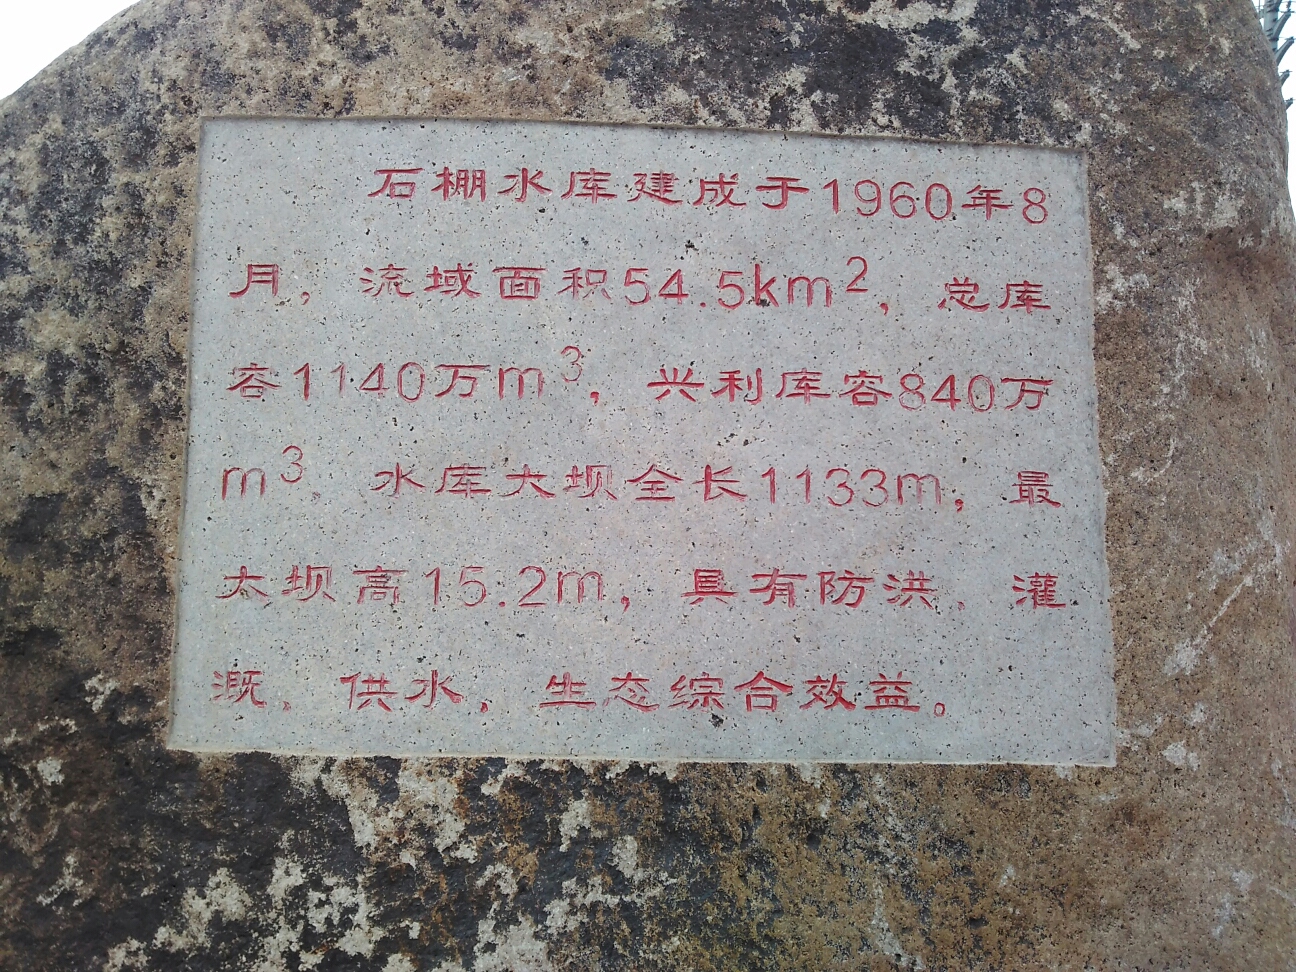 石棚水库建成于1960年8
月，流域面积54.5km²，总库
容1140万m³，兴利库容840万
m³ 水库大坝全长1133m，最
大坝高15.2m，具有防洪、灌
溉、供水，生态综合效益。